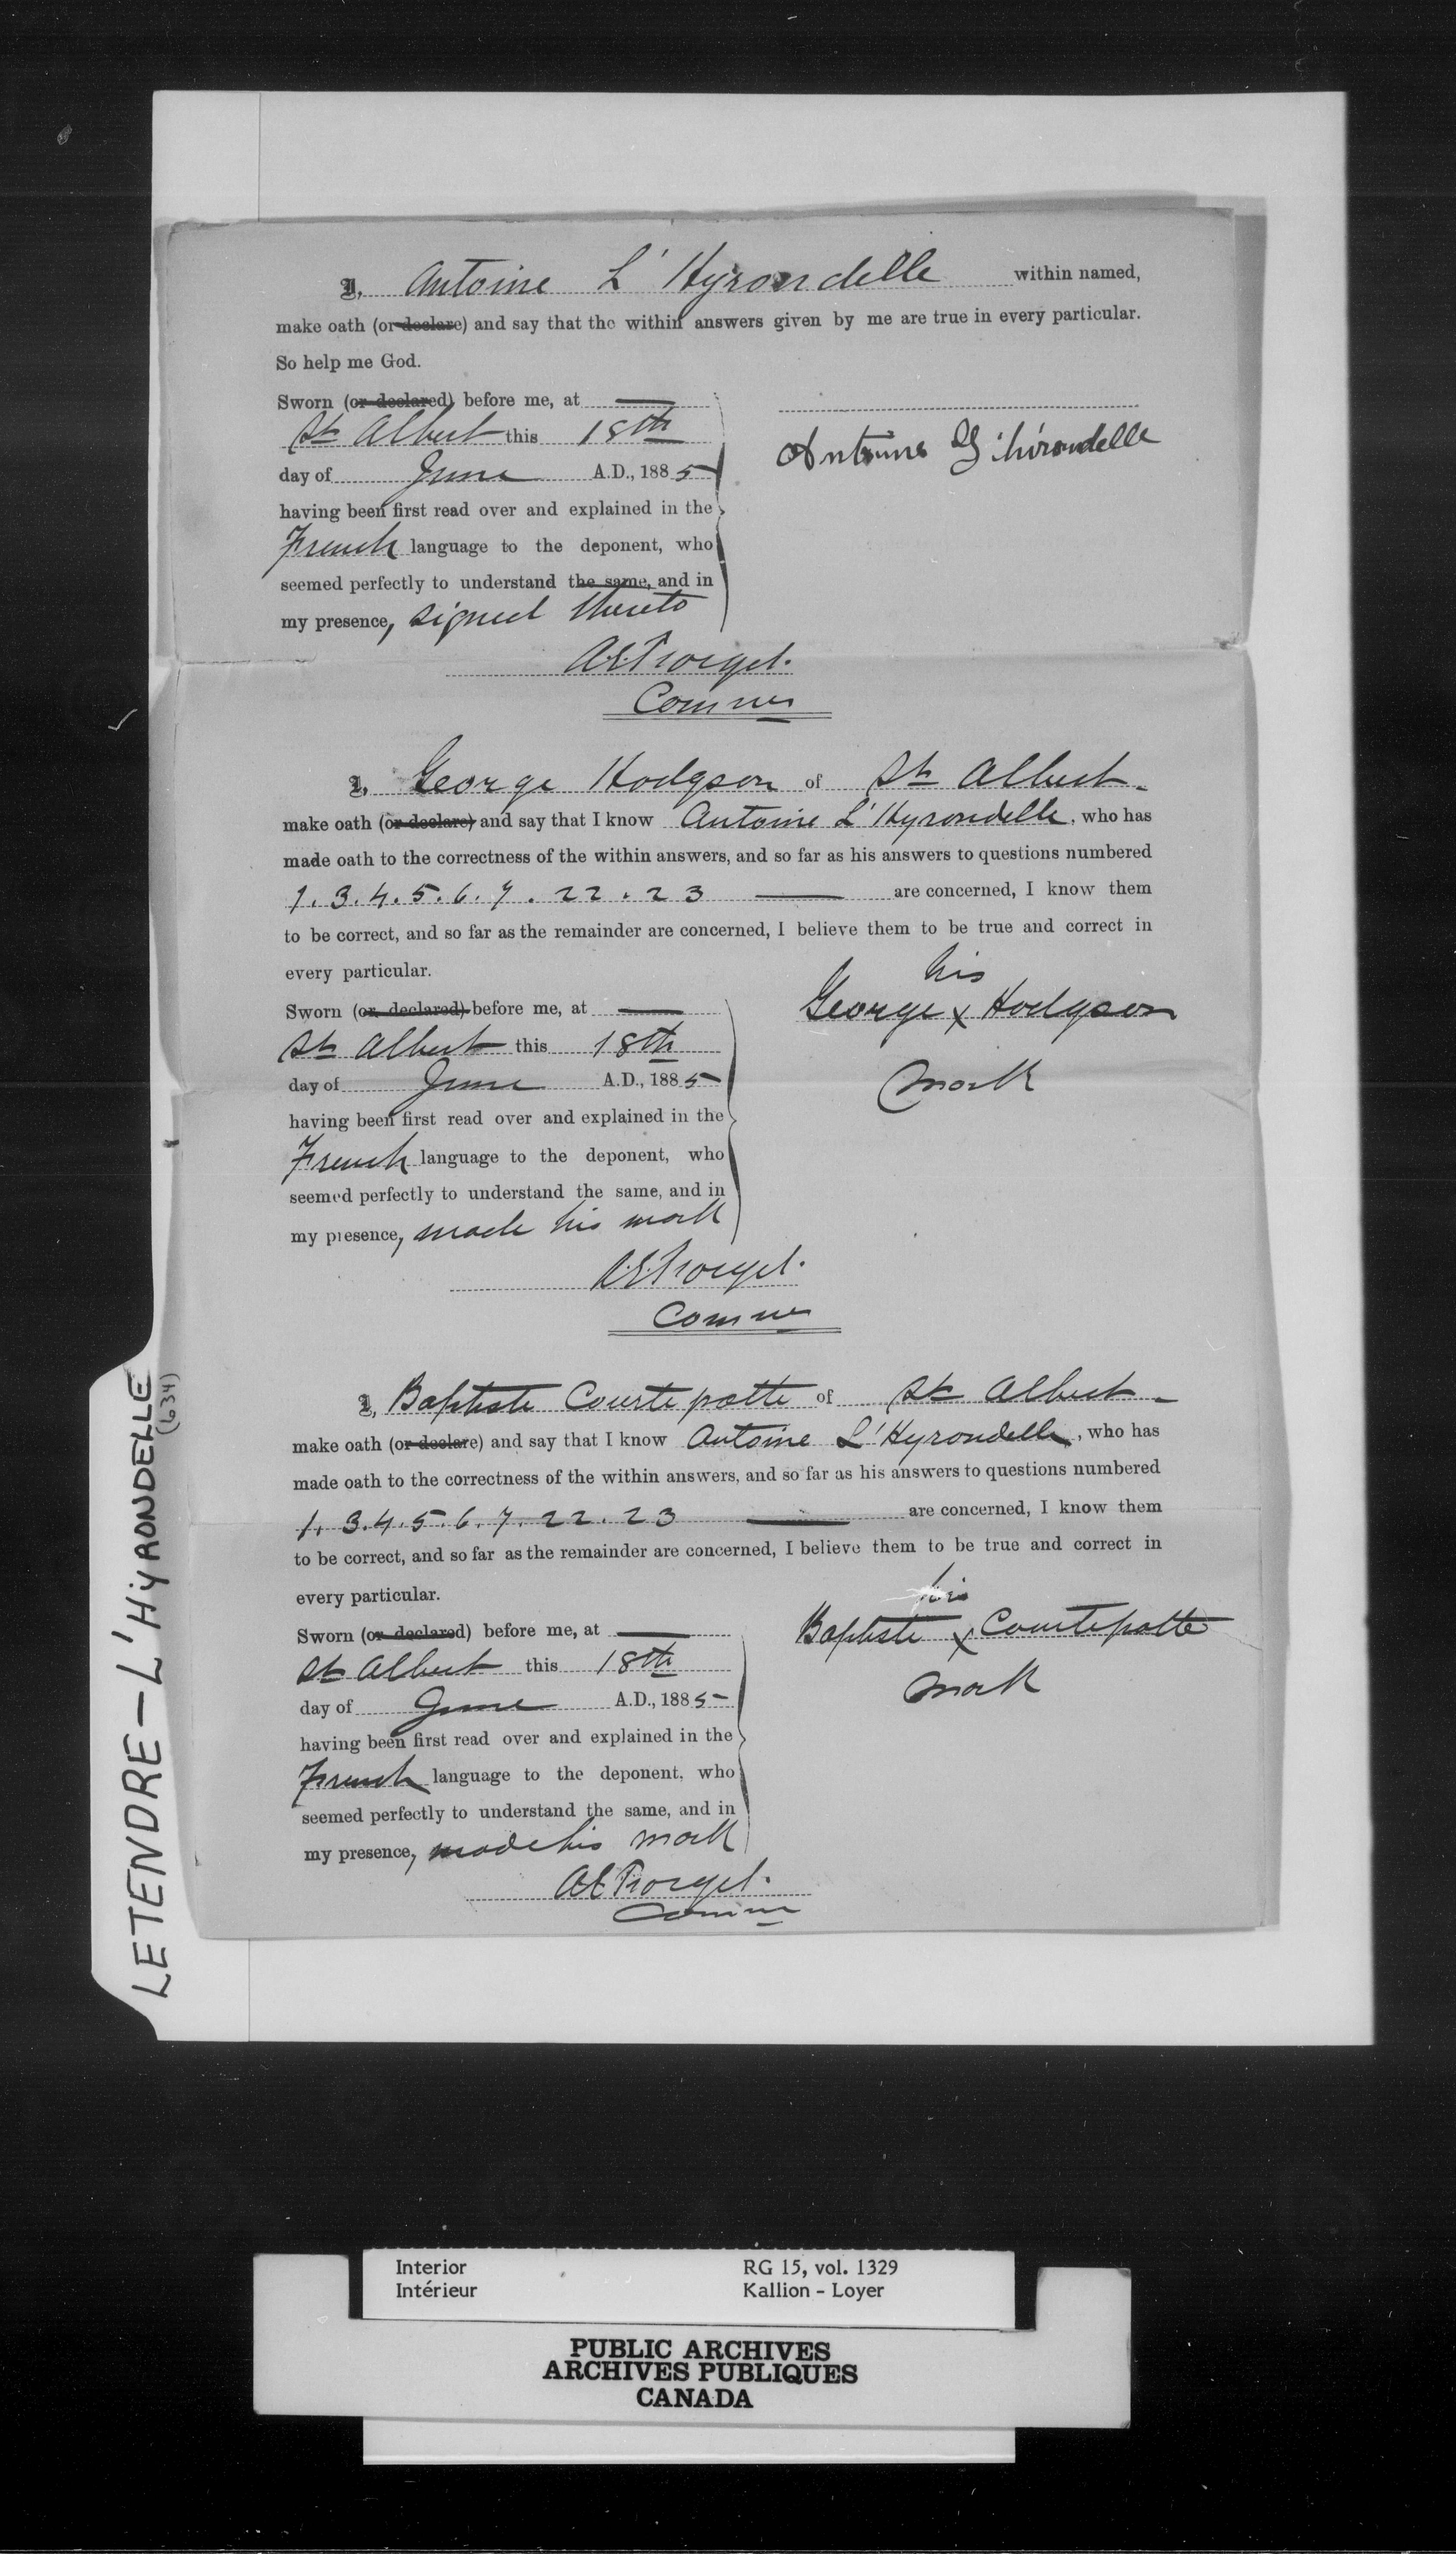 I, Antoine L'Hyrondelle within named,
make oath (or declare) and say that the within answers given by me are true in every particular.
So help me God.
Sworn (or declared) before me, at
St Albert this 18th
day of June A.D., 1885
having been first read over and explained in the
French language to the deponent, who
seemed perfectly to understand the same, and in
my presence, signed thereto
Antoine L'hirondelle
Commr
I, George Hodgson of St Albert
make oath (or declare) and say that I know Antoine L'Hyrondelle, who has
made oath to the correctness of the within answers, and so far as his answers to questions numbered
1. 3. 4. 5. 6. 7. 22. 23 are concerned, I know them
to be correct, and so far as the remainder are concerned, I believe them to be true and correct in
every particular.
Sworn (or declared) before me, at
St Albert this 18th
day of June A.D., 1885
having been first read over and explained in the
French language to the deponent, who
seemed perfectly to understand the same, and in
my presence, made his mark
his
George x Hodgson
mark
Commr
I, Baptiste Courtepatte of St Albert
make oath (or declare) and say that I know Antoine L'Hyrondelle, who has
made oath to the correctness of the within answers, and so far as his answers to questions numbered
1. 3. 4. 5. 6. 7. 22. 23 are concerned, I know them
to be correct, and so far as the remainder are concerned, I believe them to be true and correct in
every particular.
Sworn (or declared) before me, at
St Albert this 18th
day of June A.D., 1885
having been first read over and explained in the
French language to the deponent, who
seemed perfectly to understand the same, and in
my presence, made his mark
his
Baptiste x Courtepatte
mark
Commr
LETENDRE - L'HYRONDELLE
(634)
Interior RG 15, vol. 1329
Intérieur Kallion - Loyer
PUBLIC ARCHIVES
ARCHIVES PUBLIQUES
CANADA